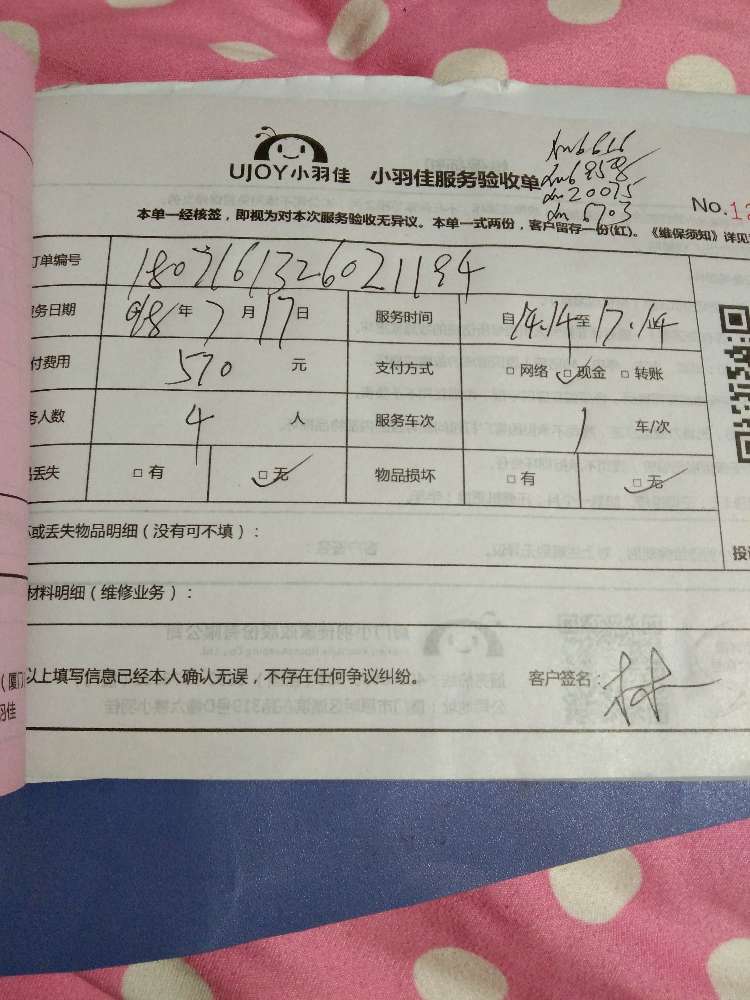 UJOY小羽佳 小羽佳服务验收单
No.12
本单一经核签，即视为对本次服务验收无异议。本单一式两份，客户留存一份(红)。《维保须知》详见
订单编号 1807161326021194
服务日期 年 7 月 17 日 服务时间 自 14.14 至 17.14
付费用 570 元 支付方式 □网络 □现金 □转账
务人数 4 人 服务车次 1 车/次
品丢失 □有 □无 物品损坏 □有 □无
坏或丢失物品明细（没有可不填）：
投
材料明细（维修业务）：
以上填写信息已经本人确认无误，不存在任何争议纠纷。 客户签名：林
（厦门
羽佳